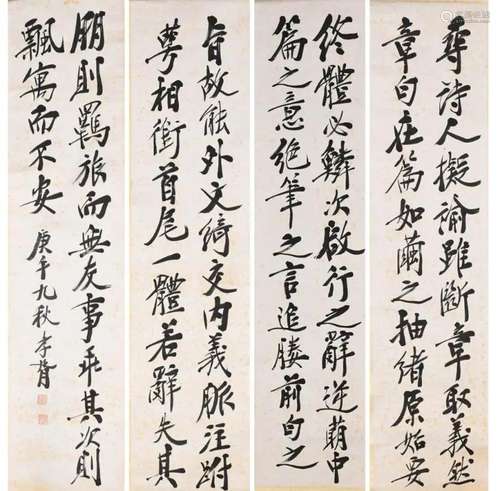 尋詩人擬喻雖斷章取義然
章句在篇如繭之抽緒原始要
終體必鱗次啟行之辭逆萌中
篇之意絶筆之言追媵前句之
旨故能外文綺交內義脈注跗
萼相銜首尾一體若辭失其
朋則羈旅而無友事乖其次則
飄寓而不安
庚午九秋孝胥